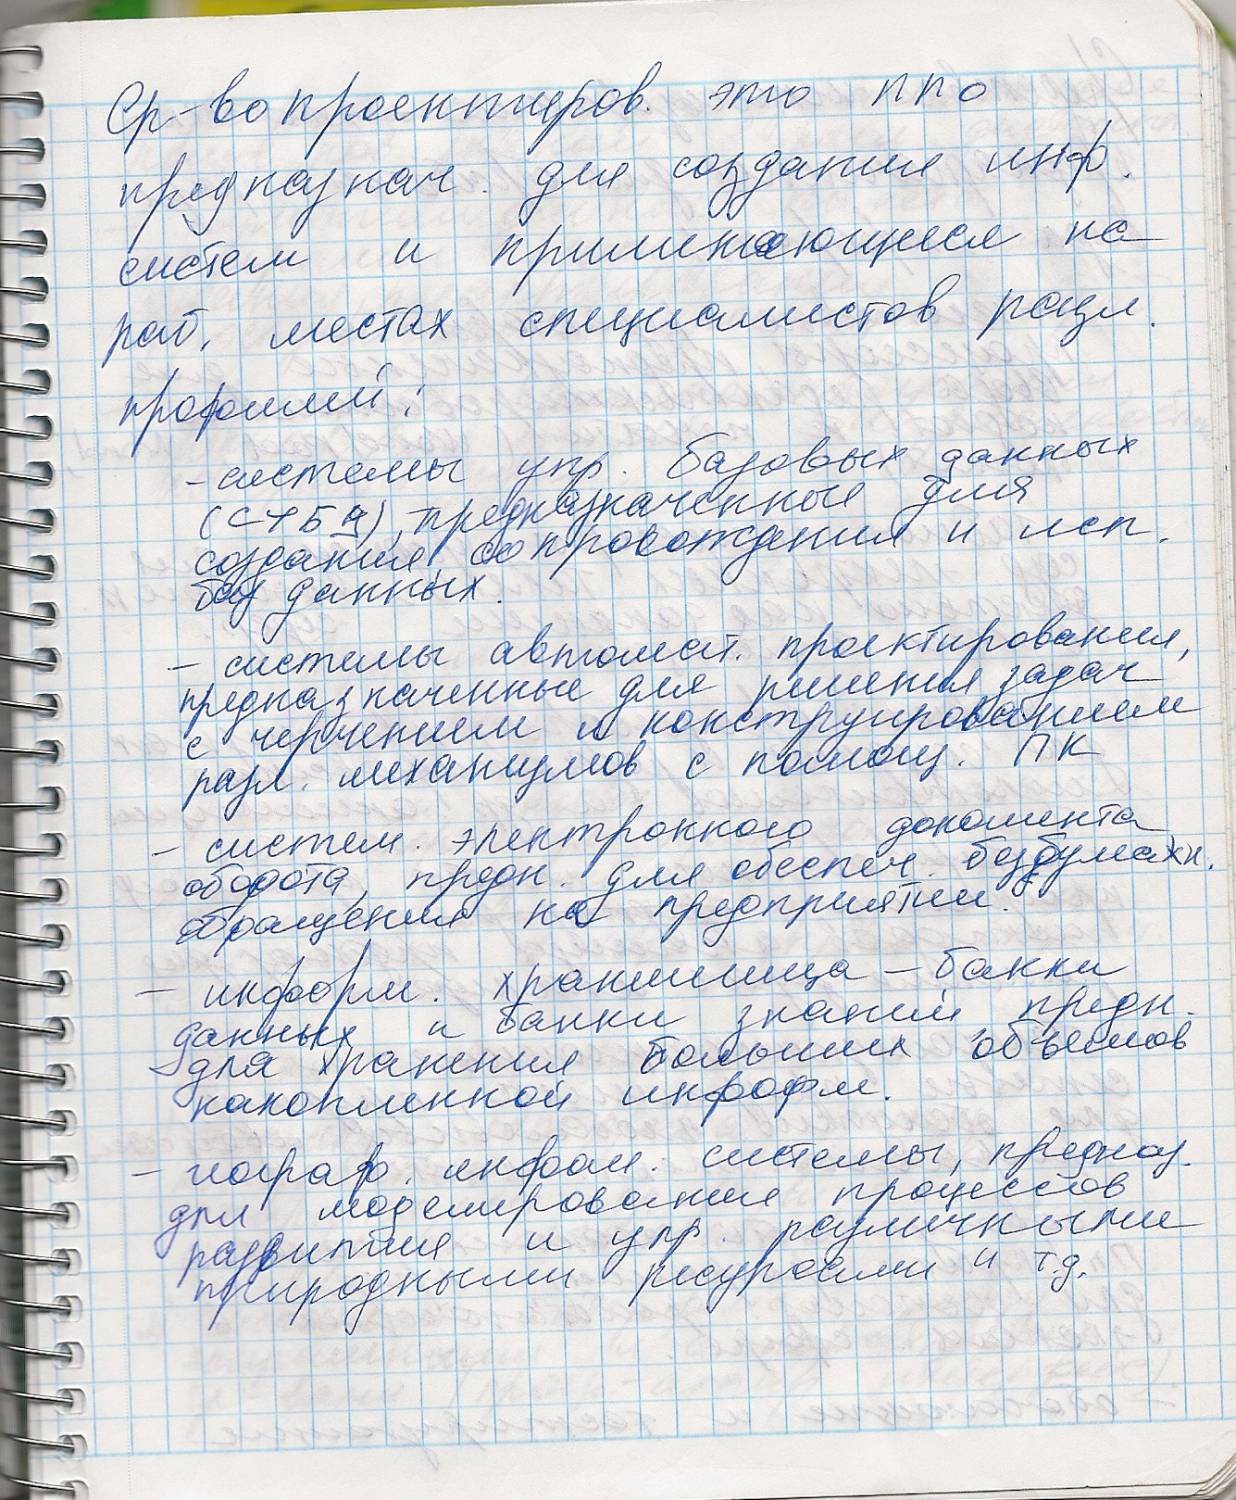 Ср-во проектиров. это ППО
предназнач. для создания инф.
систем и применяющиеся на
раб. местах специалистов разл.
профилей:
- системы упр. базовых данных
(СУБД), предназначенные для
создания, сопровождения и исп.
баз данных.
- системы автомат. проектирования,
предназначенные для решения задач
с черчением и конструированием
разл. механизмов с помощ. ПК
- систем. электронного документа
оборота, предн. для обеспеч. безбумажн.
обращения на предприятии.
- информ. хранилища - банки
данных и банки знаний предн.
для хранения больших объемов
накопленной информ.
- информ. системы, предназ.
для моделирования процессов
развития и упр. различными
природными ресурсами и т.д.